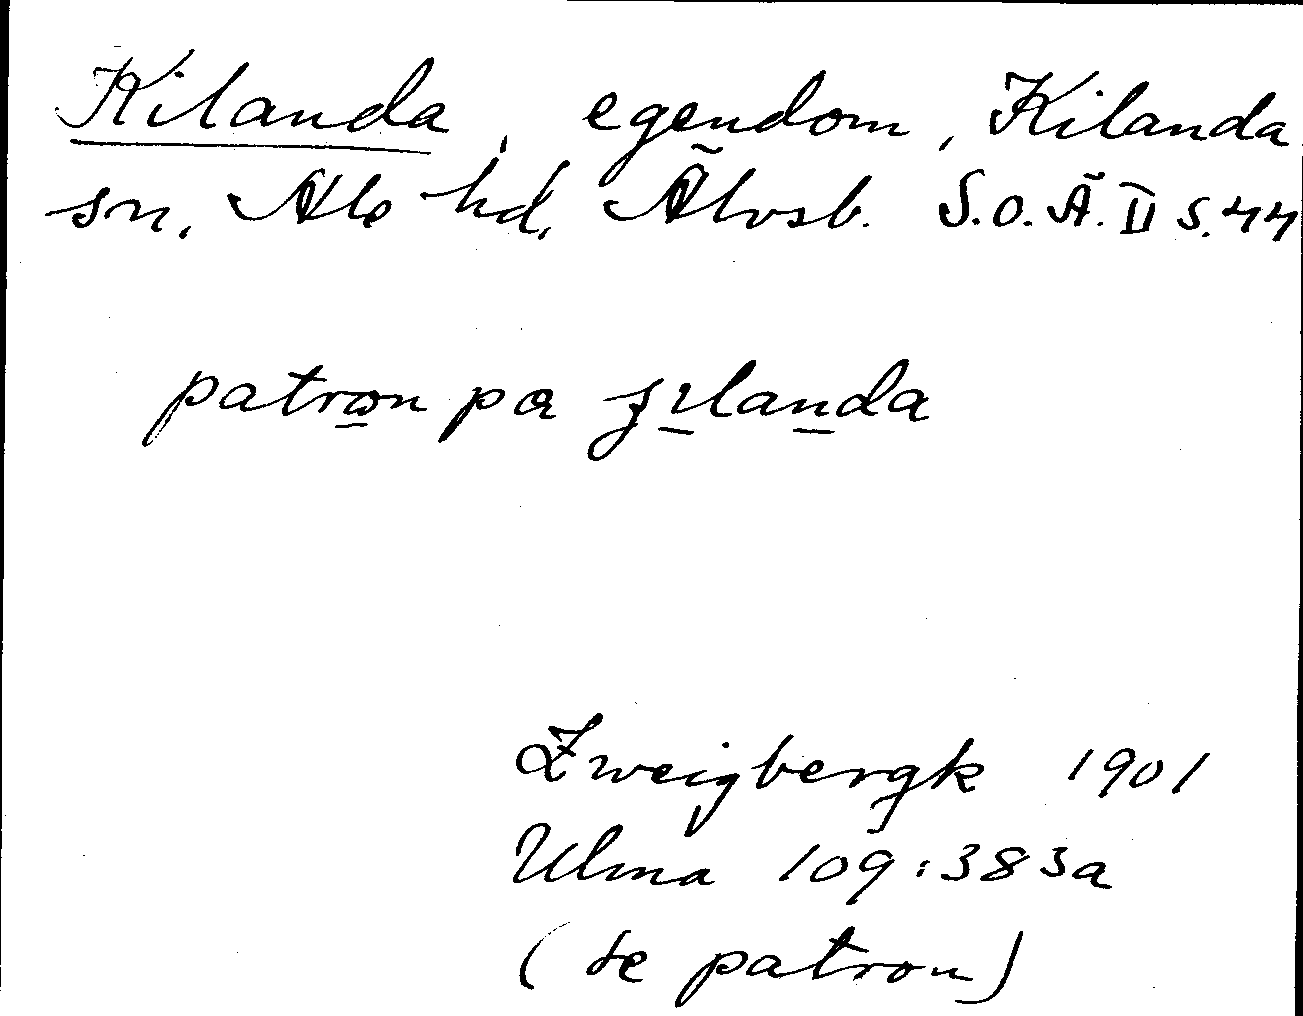 Kilanda, egendom, Kilanda
sn, Ale hd, Älvsb. S.O.Ä. II s. 44
patron pa
Zweigbergk 1901
Ulma 109:383a
(se patron)